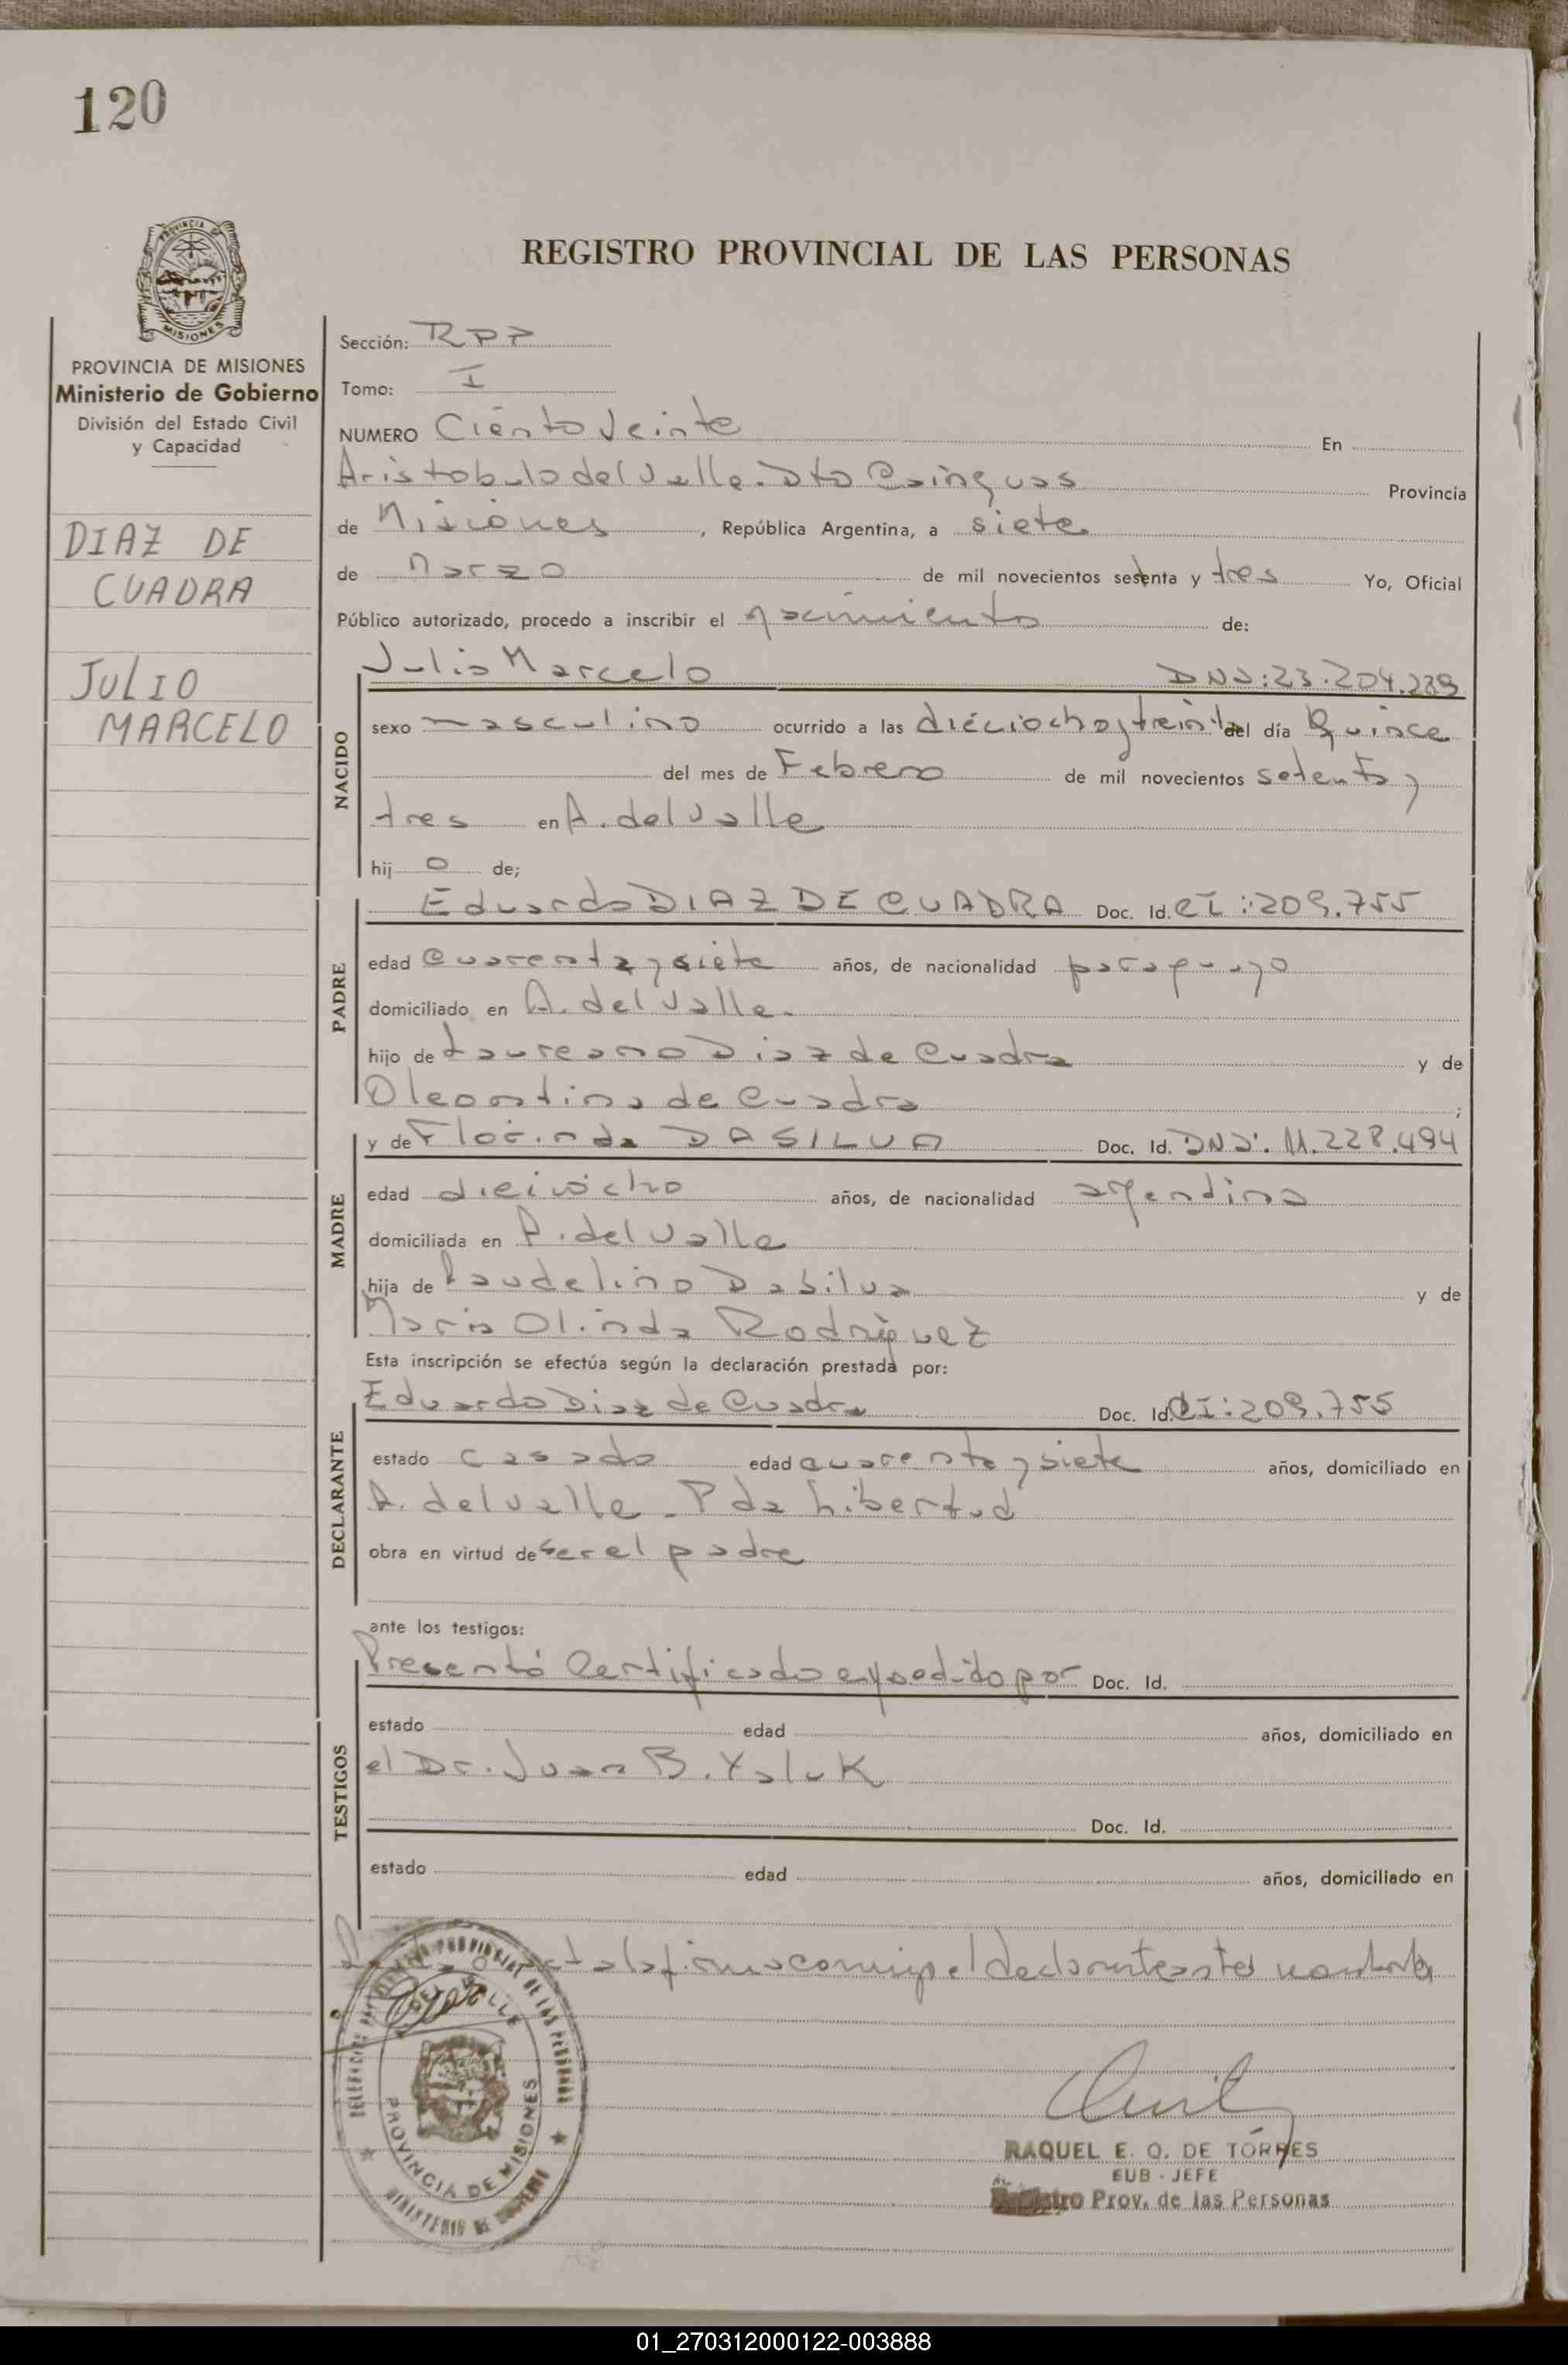 120
PROVINCIA DE
MISIONES
REGISTRO PROVINCIAL DE LAS PERSONAS
PROVINCIA DE MISIONES
Ministerio de Gobierno
División del Estado Civil
y Capacidad
DIAZ DE
CUADRA
JULIO
MARCELO
Sección: RPP
Tomo: I
NUMERO Ciento Veinte En
Aristobulo del Valle. Dto Cainguas Provincia
de Misiones, República Argentina, a siete
de Marzo de mil novecientos setenta y tres Yo, Oficial
Público autorizado, procedo a inscribir el nacimiento de:
NACIDO
Julio Marcelo DNI: 23.204.239
sexo masculino ocurrido a las dieciocho y treinta del día Quince
del mes de Febrero de mil novecientos setenta y
tres en A. del Valle
hij o de;
PADRE
Eduardo DIAZ DE CUADRA Doc. Id. CI: 209.755
edad Cuarenta y siete años, de nacionalidad paraguayo
domiciliado en A. del Valle.
hijo de Laureano Diaz de Cuadra y de
Oleontina de Cuadra ;
MADRE
y de Florinda DASILVA Doc. Id. DNI: 11.228.494
edad dieiocho años, de nacionalidad argentina
domiciliada en A. del Valle
hija de Laudelino Dasilva y de
Maria Olinda Rodriguez
Esta inscripción se efectúa según la declaración prestada por:
DECLARANTE
Eduardo Diaz de Cuadra Doc. Id. CI: 209.755
estado casado edad cuarenta y siete años, domiciliado en
A. del Valle - Pda Libertad
obra en virtud de ser el padre
ante los testigos:
TESTIGOS
Presentó Certificado expedido por Doc. Id.
estado edad años, domiciliado en
el Dr. Juan B. Yaluk
Doc. Id.
estado edad años, domiciliado en
acta la firma conmigo el declarante
DEL VALLE
PROVINCIA DE MISIONES
RAQUEL E. O. DE TORRES
SUB - JEFE
Registro Prov. de las Personas
01_270312000122-003888